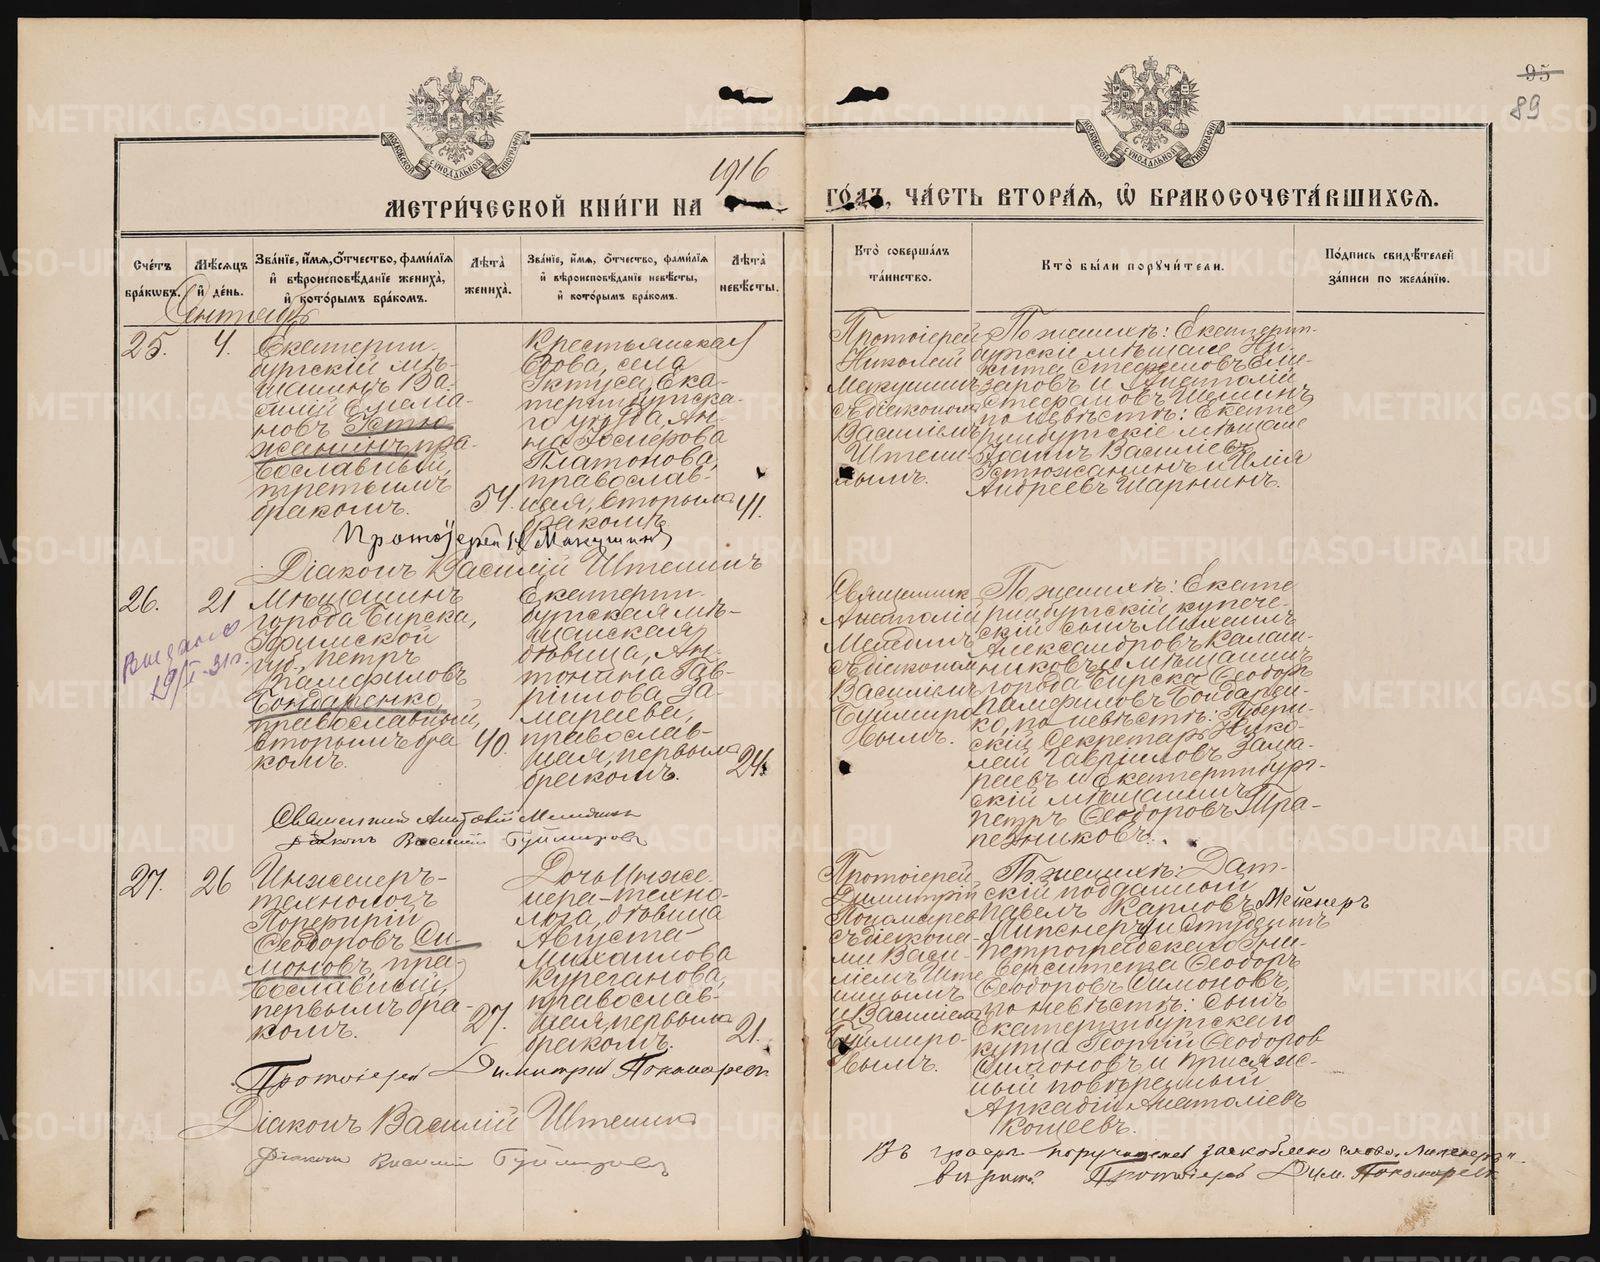 95
89
МОСКОВСКОЙ СѴНОДАЛЬНОЙ ТИПОГРАФІИ
МОСКОВСКОЙ СѴНОДАЛЬНОЙ ТИПОГРАФІИ
1916
МЕТРИ́ЧЕСКОЙ КНИ́ГИ НА
ГО́ДЪ, ЧА́СТЬ ВТОРА́Я, Ѽ БРАКОСОЧЕТА́ВШИХСЯ.
Сче́тъ бра́кѡвъ.
Мѣ́сяцъ и҆ де́нь.
Зва́нїе, и҆́мя, ѻ҆́тчество, фами́лїя
и҆ вѣроисповѣ́данїе жениха̀,
и҆ кото́рымъ бра́комъ.
Лѣ̑та̀ жениха̀.
Зва́нїе, и҆́мя, ѻ҆́тчество, фами́лїя
и҆ вѣроисповѣ́данїе невѣ́сты,
и҆ кото́рымъ бра́комъ.
Лѣ̑та̀ невѣ́сты.
Кто̀ соверша́лъ
та́инство.
Кто̀ бы́ли порꙋчи́тели.
По́дпись свидѣ́телей
за́писи по жела́нїю.
Сентябрь
25.
4.
Екатерин-
бургскій мѣ-
щанинъ Ва-
силій Емелья-
новъ Устю
жанинъ, пра-
вославный,
третьимъ
бракомъ.
54.
Крестьянская
вдова, села
Уктуса, Ека-
теринбургска-
го уѣзда, Ан-
на
Платонова,
православ-
ная, вторымъ
бракомъ
41.
Протоіерей
Николай
съ діакономъ
Василіемъ
Штени-
нымъ.
По женихѣ: Екатерин-
бургскіе мѣщане Ни-
кита Стефановъ Ели-
заровъ и Анатолій
Стефановъ
по невѣстѣ: Екате
ринбургскіе мѣщане
Іоаннъ Василіевъ
Устюжанинъ и Илія
Андреевъ Шарнинъ.
Протоіерей Н
Діаконъ Василій Штенинъ
26.
21
Выдано
19/I-31г.
Мѣщанинъ
города Бирска,
Уфимской
губ., Петръ
Памфиловъ
Бондаренко,
православный,
вторымъ бра
комъ.
40.
Екатерин-
бургская мѣ-
щанская
дѣвица, Ан-
тонина Гав-
ріилова За-
мараева,
православ-
ная, первымъ
бракомъ.
24.
Священникъ
Анатолій
съ діакономъ
Василіемъ
Буймиро-
вымъ.
По женихѣ: Екате
ринбургскій купече-
скій сынъ Михаилъ
Александровъ Калаш-
никовъ и мѣщанинъ
города Бирска Ѳеодоръ
Памфиловъ Бондарен-
ко, по невѣстѣ: Губерн-
скій Секретарь Нико-
лай Гавріиловъ Зама-
раевъ и Екатеринбург-
скій мѣщанинъ
Петръ Ѳеодоровъ Тра-
пезниковъ.
Священникъ Анатолій
Діаконъ Василій Буймировъ
27.
26
Инженеръ-
технологъ
Порфирій
Ѳеодоровъ Си-
моновъ, пра-
вославный,
первымъ бра-
комъ.
27.
Дочь инже-
нера-техно-
лога, дѣвица
Августа
Михаилова
Курганова,
православ-
ная, первымъ
бракомъ.
21.
Протоіерей
Димитрій
Пономаревъ
съ діакона-
ми Васи-
ліемъШте
нинымъ
и Василіемъ
Буймиро-
вымъ.
По женихѣ: Дат-
скій подданный
Павелъ Карловъ Мейснеръ
и студентъ
Петроградскаго Уни-
верситета Ѳеодоръ
Ѳеодоровъ Симоновъ,
по невѣстѣ: сынъ
Екатеринбургскаго
купца Георгій Ѳеодоров
Симоновъ и присяж-
ный повѣренный
Аркадій Анатоліевъ
Кощеевъ.
Протоіерей Димитрій Пономаревъ
Діаконъ Василій Штенинъ
Діаконъ Василій Буймировъ
Въ графѣ поручителей зачеркнуто слово
вѣрить. Протоіерей Дим. Пономаревъ
METRIKI.GASO-URAL.RU